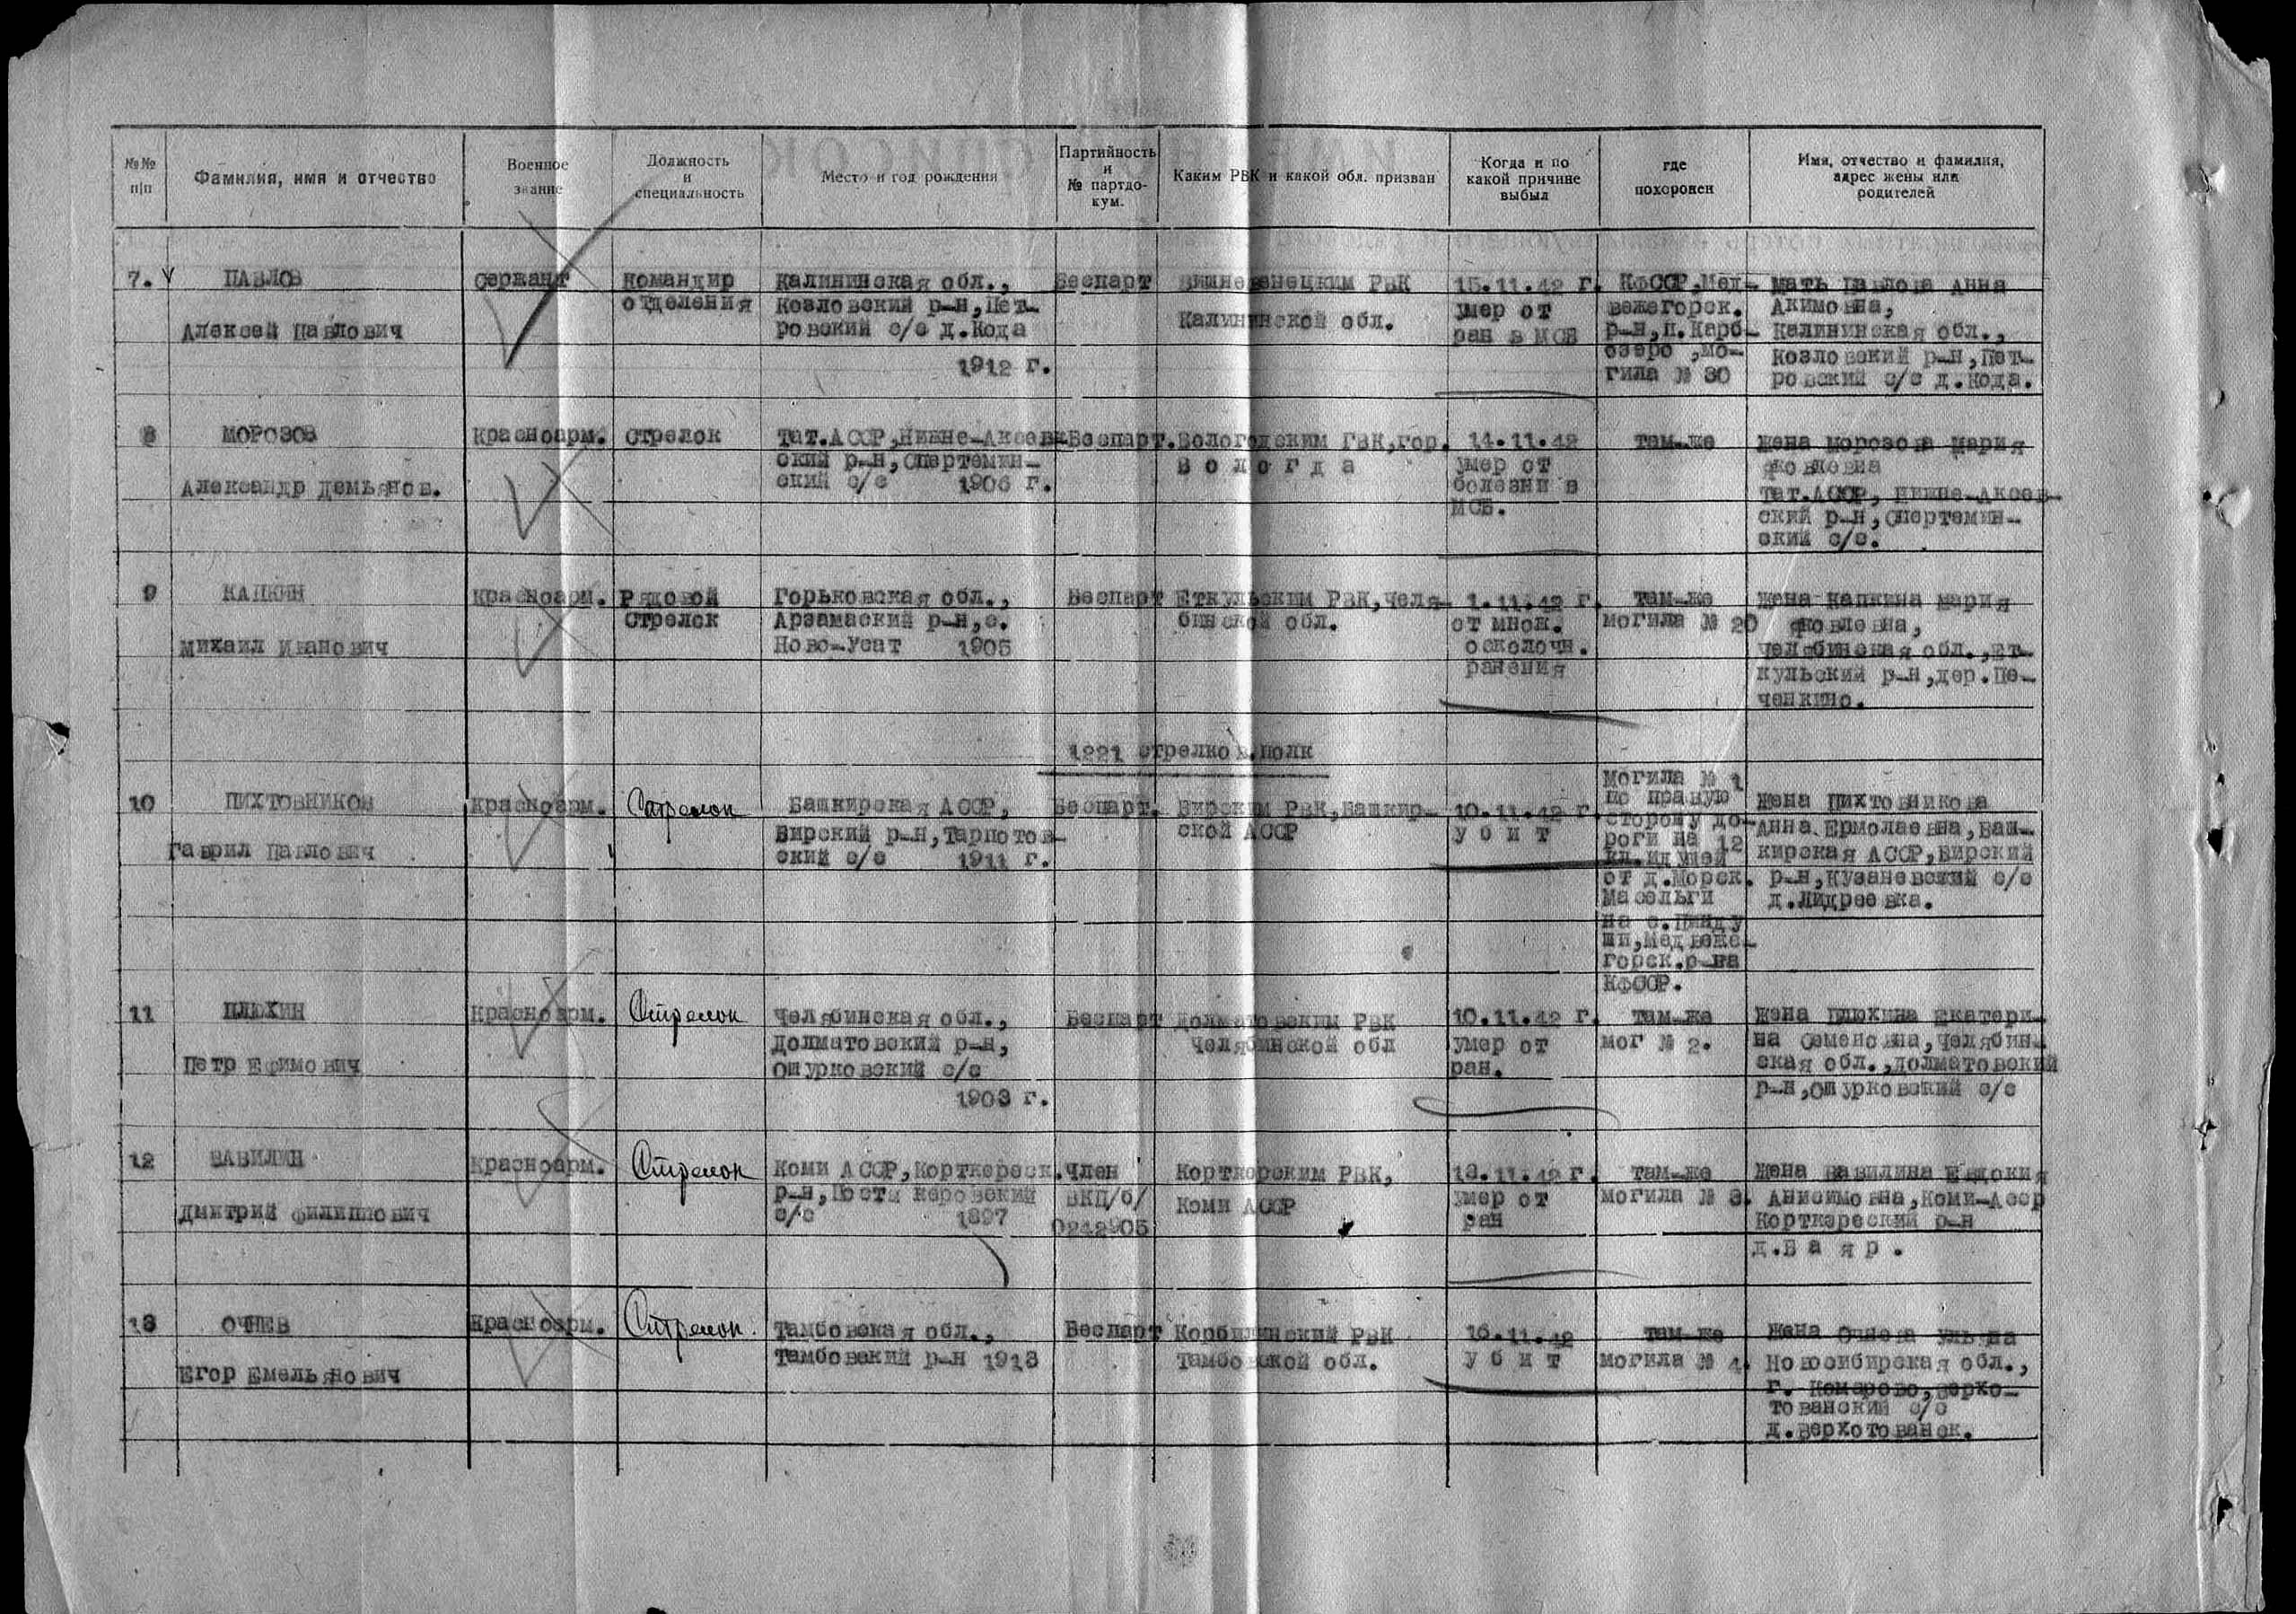 №№ п|п
Фамилия, имя и отчество
Военное звание
Должность и специальность
Место и год рождения
Партийность и № партдо-кум.
Каким РВК и какой обл. призван
Когда и по какой причине выбыл
где похоронен
Имя, отчество и фамилия, адрес жены или родителей
7.
ПАВЛОВ
Алексей Павлович
сержант
командир
отделения
Калининская обл.,
Козловский р-н, Пет-
ровский с/с д.Кода
1912 г.
Беспарт
Вишневенецким РВК
Калининской обл.
15.11.42 г.
умер от
ран в МСБ
КФССР, Мед-
вежегорск.
р-н, п. Карб-
озеро, мо-
гила № 30
Мать Павлова Анна
Акимовна,
Калининская обл.,
Козловский р-н, Пет-
ровский с/с д.Кода.
8
МОРОЗОВ
Александр Демьянов.
Красноарм.
стрелок
Тат.АССР, Нижне-Акоев-
ский р-н, Спертемин-
ский с/с 1906 г.
Беспарт.
Вологодским ГВК, гор.
В о л о г д а
14.11.42
умер от
болезни в
МСБ.
там-же
Жена Морозова Мария
Яковлевна
Тат.АССР, Нижне-Акоев-
ский р-н, Спертемин-
ский с/с.
9
КАПКИН
Михаил Иванович
Красноарм.
Рядовой
Стрелок
Горьковская обл.,
Арзамаский р-н, с.
Ново-Усат 1905
Беспарт
Еткульским РВК, Челя-
бинской обл.
1.11.42 г.
от множ.
осколочн.
ранения
там-же
могила № 20
Жена Капкина Мария
Яковлевна,
Челябинская обл., Ет-
кульский р-н, дер. Пе-
ченкино.
1221 стрелков.полк
10
ПИХТОВНИКОВ
Гаврил Павлович
Красноарм.
Стрелок
Башкирская АССР,
Бирский р-н, Тарпотов-
ский с/с 1911 г.
Беспарт.
Бирским РВК, Башкир-
ской АССР
10.11.42 г.
у б и т
Могила № 1
по правую
сторону до-
роги на 12
кл. идущей
от д.Морск.
Масельги
на с.Пинду
ши, Медвеже-
горск.р-на
КФССР.
Жена Пихтовникова
Анна Ермолаевна, Баш-
кирская АССР, Бирский
р-н, Кузановский с/с
д.Лидреевка.
11
ПЛЮХИН
Петр Ефимович
Красноарм.
Стрелок
Челябинская обл.,
Долматовский р-н,
Ошурковский с/с
1903 г.
Беспарт
Долматовским РВК
Челябинской обл
10.11.42 г.
умер от
ран.
там-же
мог № 2.
Жена Плюхина Екатери-
на Семеновна, Челябин-
ская обл., Долматовский
р-н, Ошурковский с/с
12
ВАВИЛИН
Дмитрий Филиппович
Красноарм.
Стрелок
Коми АССР, Корткереск.
р-н, Пости керовский
с/с 1897
Член
ВКП/б/
0242905
Корткерским РВК,
Коми АССР
13.11.42 г.
умер от
ран
там-же
могила № 3.
Жена Вавилина Евдокия
Анисимовна, Коми-Асср
Корткереский р-н
д.В а я р .
13
ОЧНЕВ
Егор Емельянович
Красноарм.
Стрелок.
Тамбовская обл.,
Тамбовский р-н 1913
Беспарт
Корбилинский РВК
Тамбовской обл.
16.11.42
у б и т
там-же
могила № 4.
Жена Очнева Ульяна
Новосибирская обл.,
г. Кемерово, Верхо-
тованский с/с
д.Верхотованск.